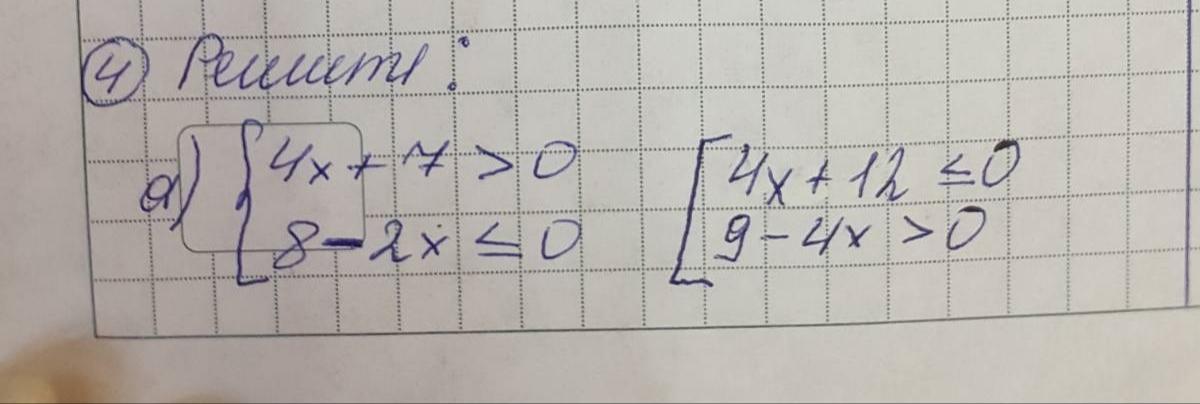 ④ Решить:
а) { 4x + 7 > 0
8 - 2x ≤ 0
[ 4x + 12 ≤ 0
9 - 4x > 0